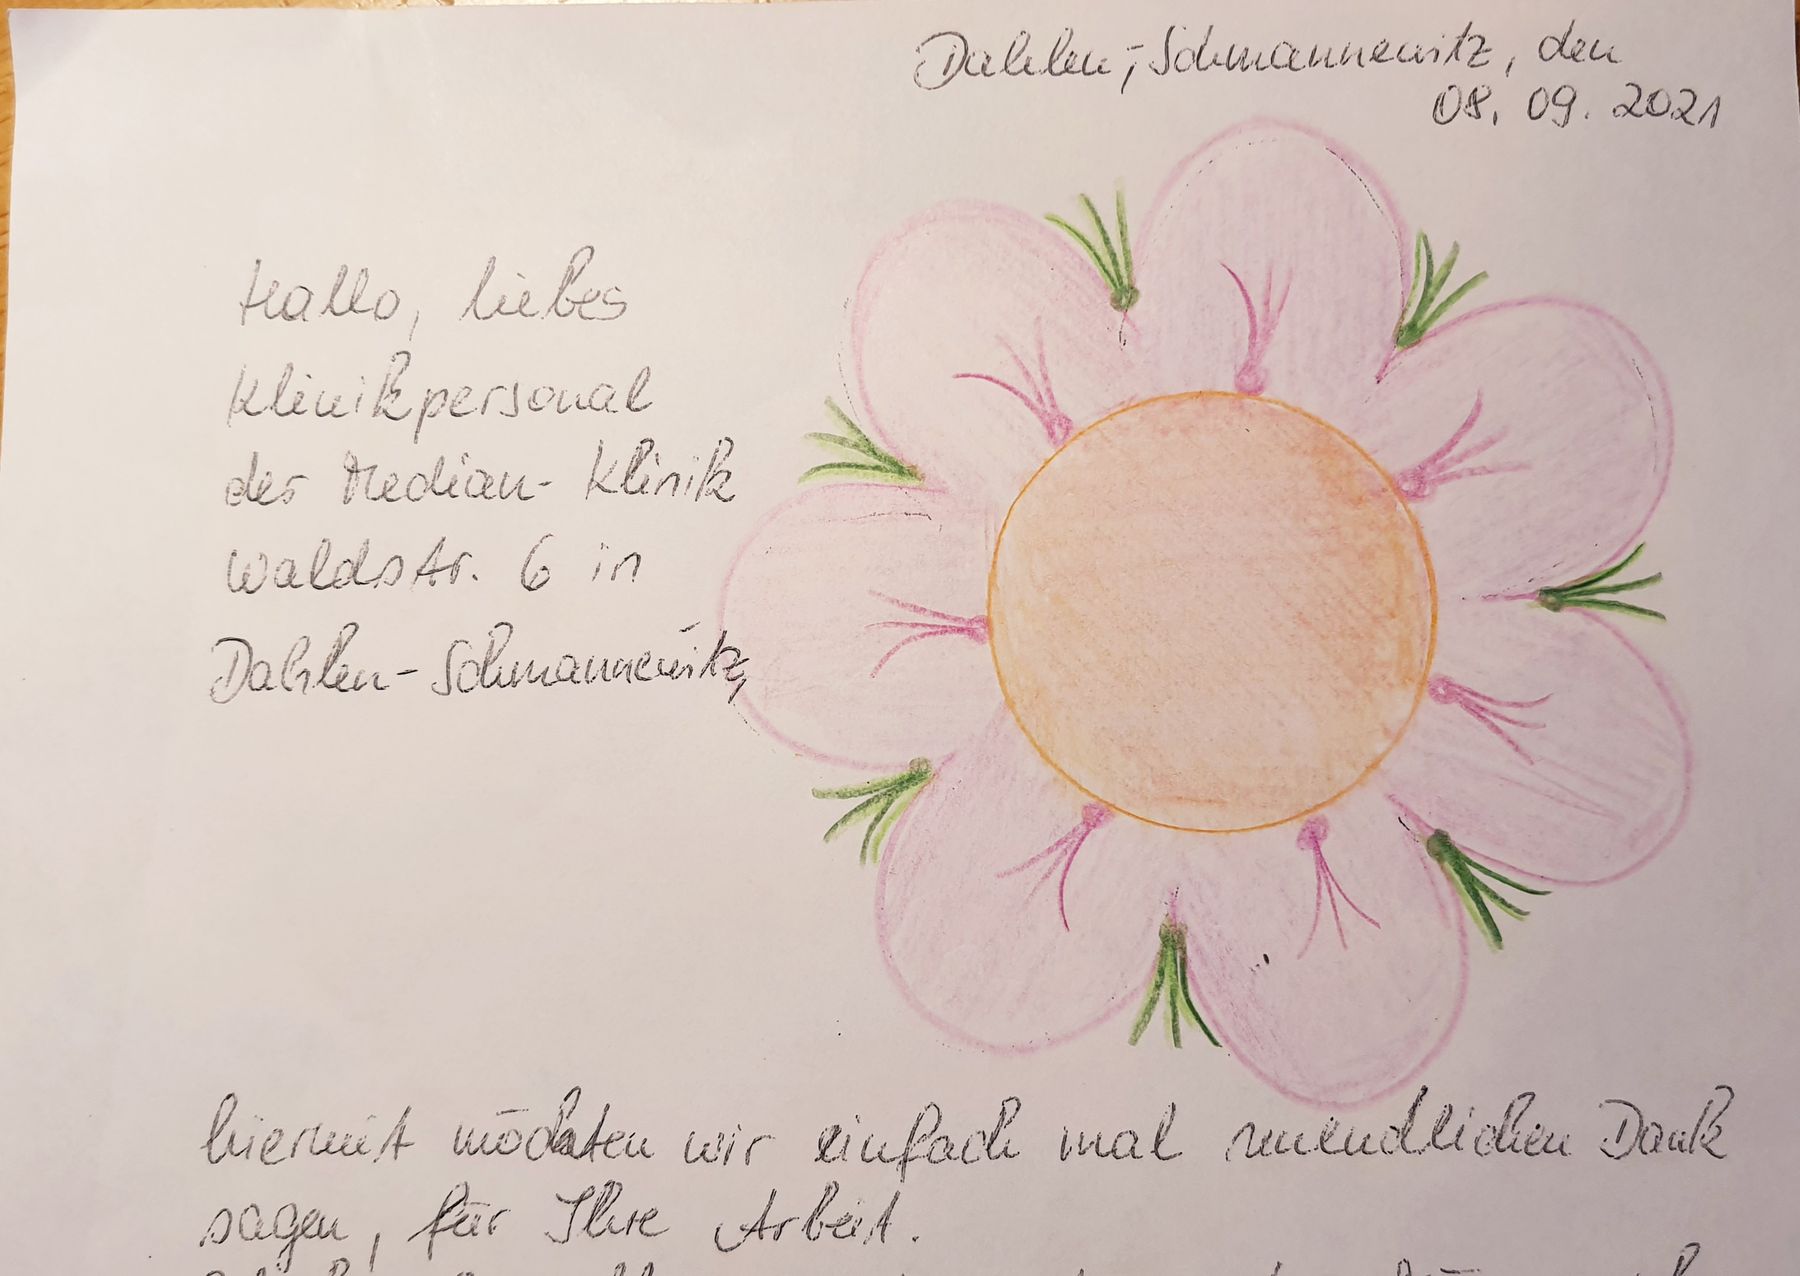 Dahlen,-Schmannewitz, den
08. 09. 2021
Hallo, liebes
Klinikpersonal
der Median-Klinik
Waldstr. 6 in
Dahlen-Schmannewitz,
hiermit möchten wir einfach mal unendlichen Dank
sagen, für Ihre Arbeit.